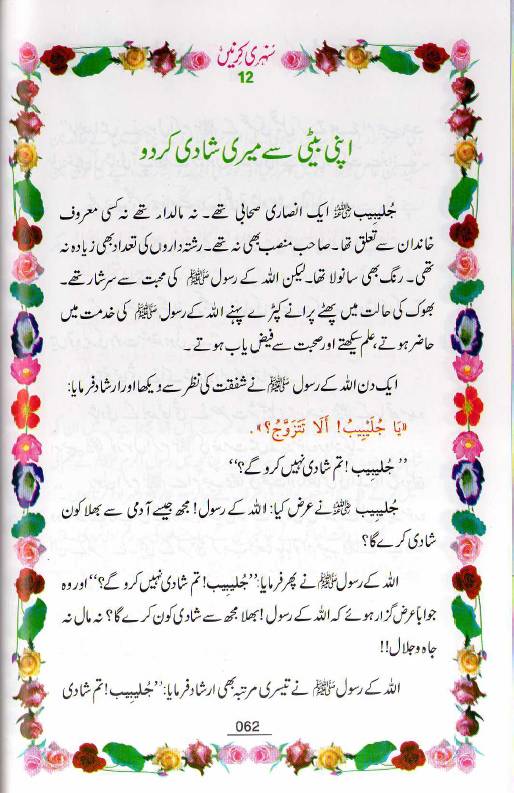 سنہری کرنیں
12
اپنی بیٹی سے میری شادی کر دو
جُلیبیب ﷺ ایک انصاری صحابی تھے۔ نہ مالدار تھے نہ کسی معروف
خاندان سے تعلق تھا۔ صاحب منصب بھی نہ تھے۔ رشتہ داروں کی تعداد بھی زیادہ نہ
تھی۔ رنگ بھی سانولا تھا۔ لیکن اللہ کے رسول ﷺ کی محبت سے سرشار تھے۔
بھوک کی حالت میں پھٹے پرانے کپڑے پہنے اللہ کے رسول ﷺ کی خدمت میں
حاضر ہوتے، علم سیکھتے اور صحبت سے فیض یاب ہوتے۔
ایک دن اللہ کے رسول ﷺ نے شفقت کی نظر سے دیکھا اور ارشاد فرمایا:
«يَا جُلَيْبِيبُ! أَلَا تَتَزَوَّجُ؟».
’’جُلیبِیب! تم شادی نہیں کرو گے؟‘‘
جُلیبِیب ﷺ نے عرض کیا: اللہ کے رسول! مجھ جیسے آدمی سے بھلا کون
شادی کرے گا؟
اللہ کے رسول ﷺ نے پھر فرمایا: ’’جُلیبِیب! تم شادی نہیں کرو گے؟‘‘ اور وہ
جواباً عرض گزار ہوئے کہ اللہ کے رسول! بھلا مجھ سے شادی کون کرے گا؟ نہ مال نہ
جاہ و جلال!!
اللہ کے رسول ﷺ نے تیسری مرتبہ بھی ارشاد فرمایا: ’’جُلیبِیب! تم شادی
062